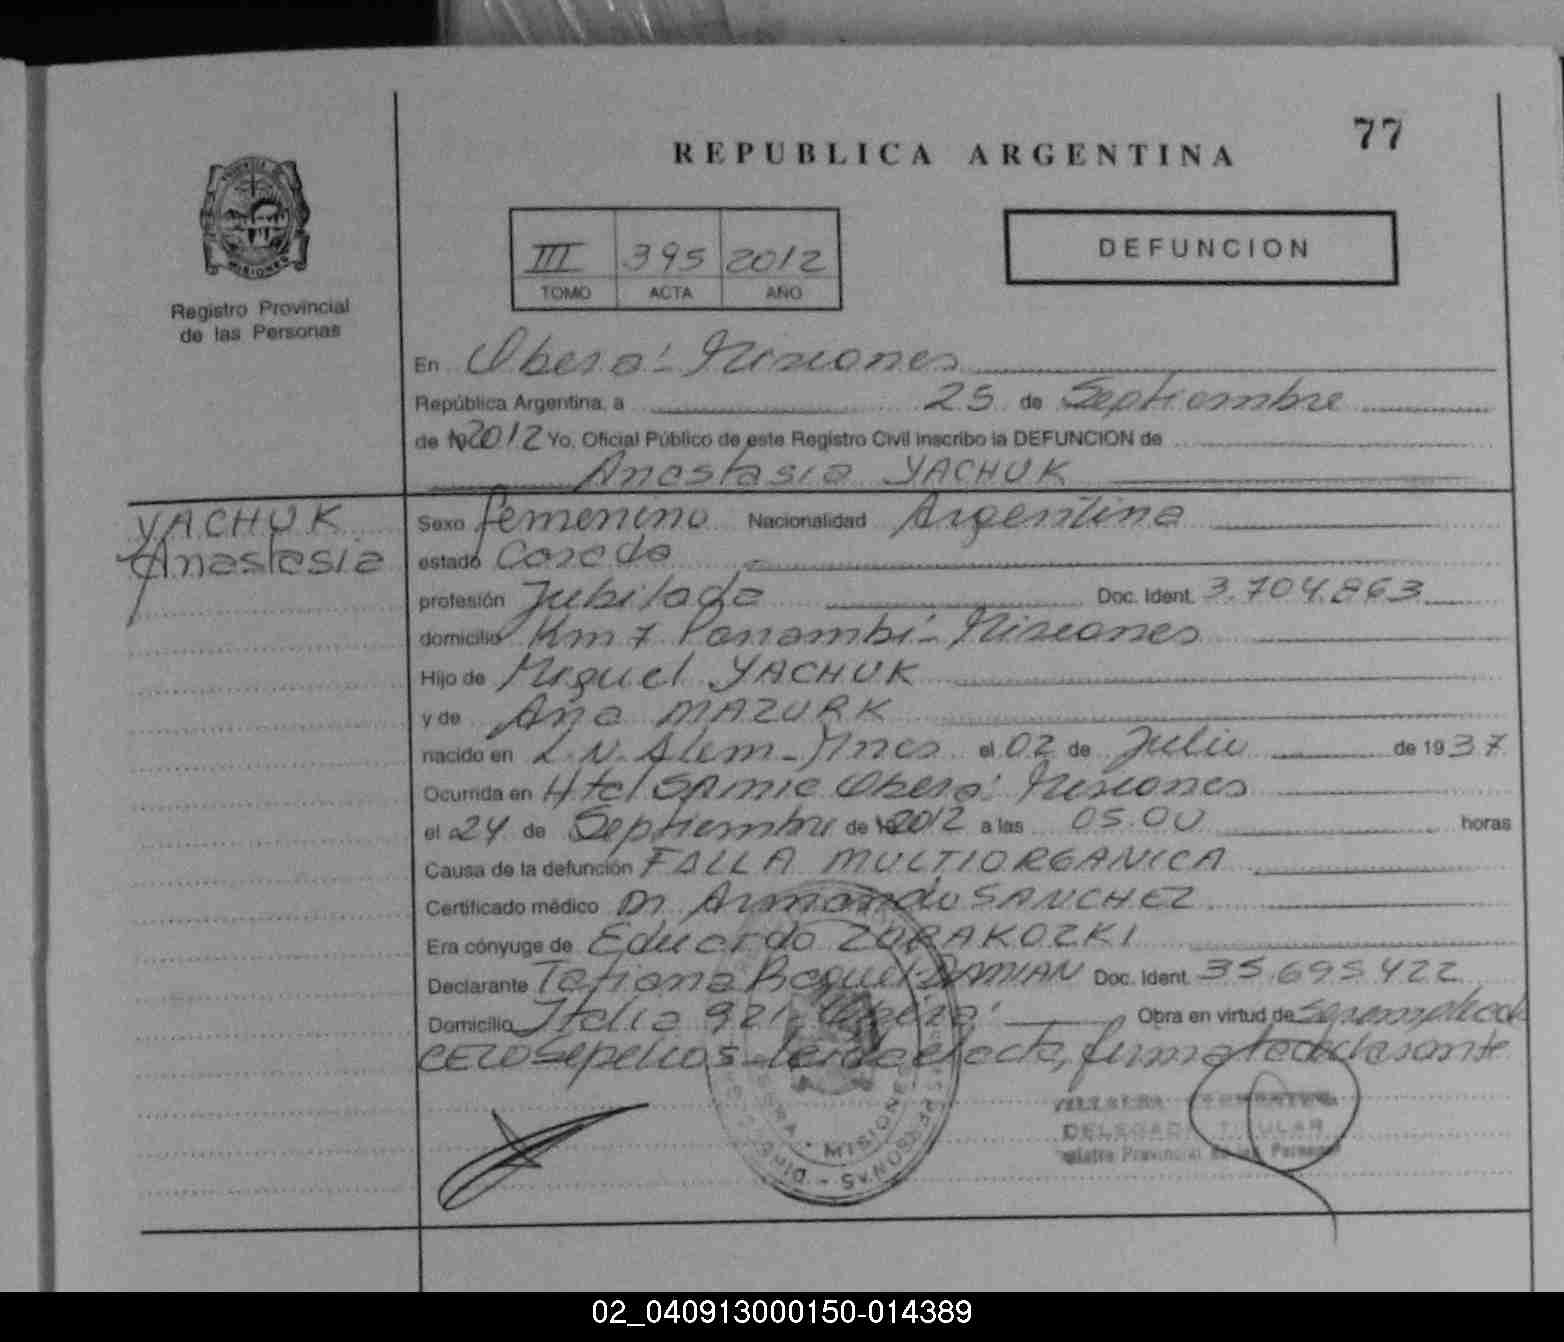 77
REPUBLICA ARGENTINA
MISIONES
Registro Provincial
de las Personas
III 395 2012
TOMO ACTA AÑO
DEFUNCION
En Oberá - Misiones
República Argentina, a 25 de Septiembre
de 19 2012 Yo, Oficial Público de este Registro Civil inscribo la DEFUNCION de
Anastasia YACHUK
YACHUK
Anastasia
Sexo femenino Nacionalidad Argentina
estado Casada
profesión Jubilada Doc. Ident. 3.704.863
domicilio Km 7 Panambí - Misiones
Hijo de Miguel YACHUK
y de Ana MAZURK
nacido en L.N. Alem - Mnes el 02 de Julio de 1937
Ocurrida en Htal SAMIC Oberá Misiones
el 24 de Septiembre de 19 2012 a las 05.00 horas
Causa de la defunción FALLA MULTIORGANICA
Certificado médico Dr Armando SANCHEZ
Era cónyuge de Eduardo ZARAKOZKI
Declarante Tatiana Raquel DAMIAN Doc. Ident. 35.695.422
Domicilio Italia 921 Oberá Obra en virtud de ser empleada
CELO Sepelios - Leida el acta, firma la declarante
DELEGADA TITULAR
Registro Provincial de las Personas
MISIONES
PERSONAS
02_040913000150-014389